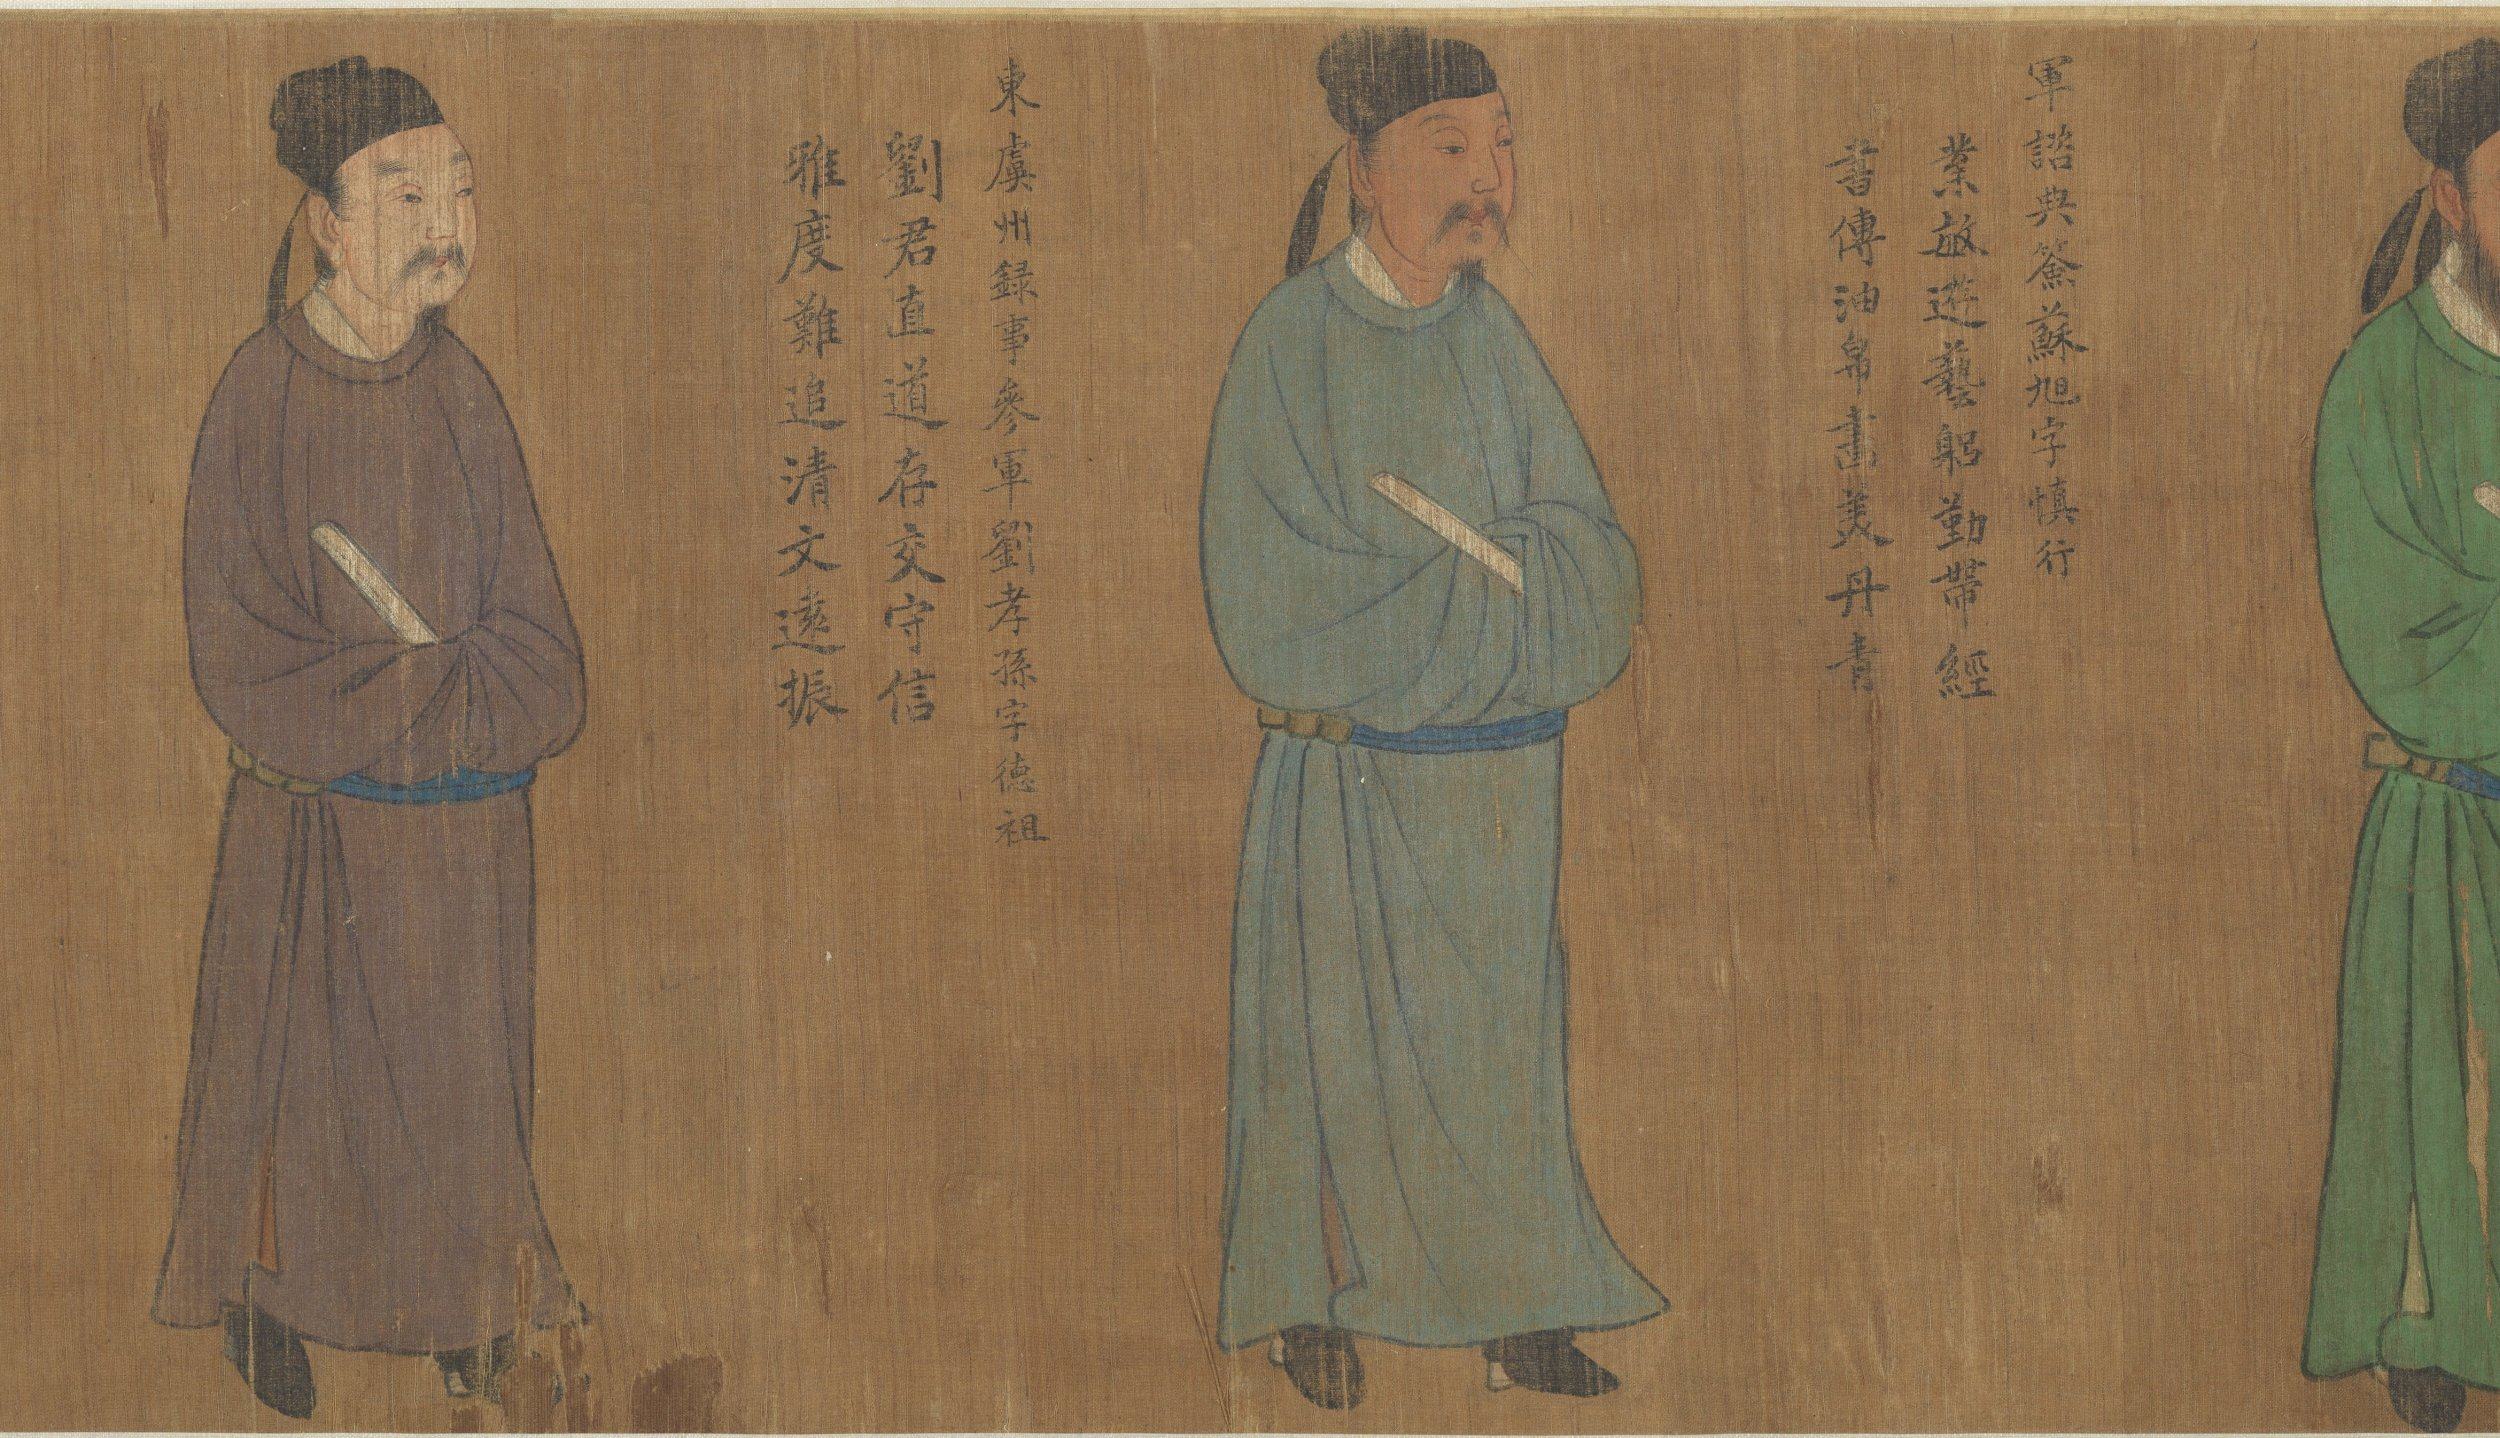 軍諮典簽蘇旭字慎行
業敏遊藝躬勤帶經
書傳油帛畫美丹青
東虞州録事參軍劉孝孫字德祖
劉君直道存交守信
雅度難追清文遠振